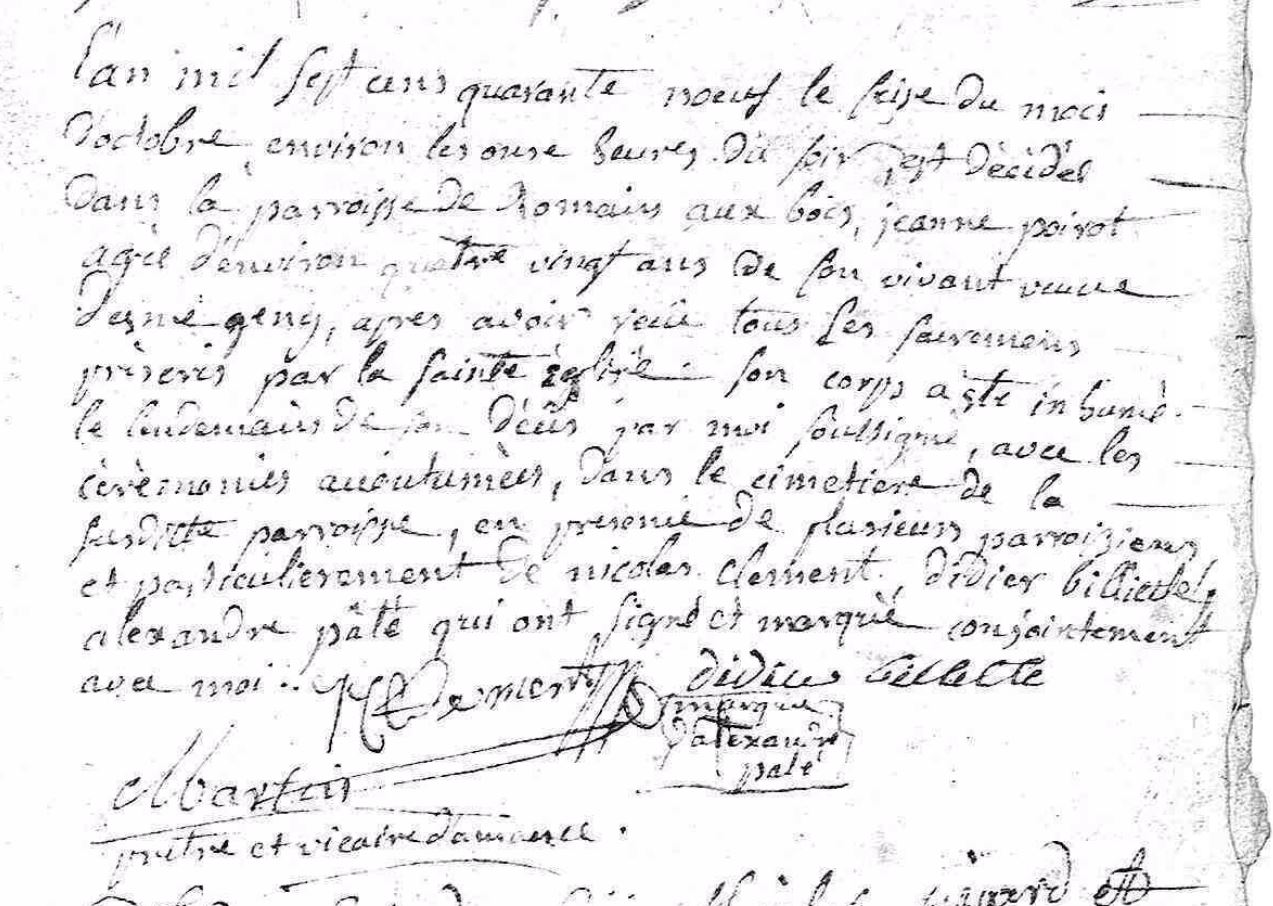 L'an mil sept cens quarante noeuf le seize du mois
d'octobre, environ les onze heures du soir, est décédée
dans la parroisse de Romain aux bois, jeanne poirot
agée d'environ quatre vingt ans de son vivant veuve
après avoir reçu tous les sacremens
prescris par la sainte église son corps a été inhumé
le lendemain de son décès par moi soussigné, avec les
cérémonies accoutumées, dans le cimetiere de la
susditte parroisse, en presence de plusieurs parroissiens
et particulierement de nicolas clement, didier
alexandre pâté qui ont signé et marqué conjointement
avec moi ..
N Clement didier
marque
d'alexandre
paté
Martin
prêtre et vicaire d'amance.
et